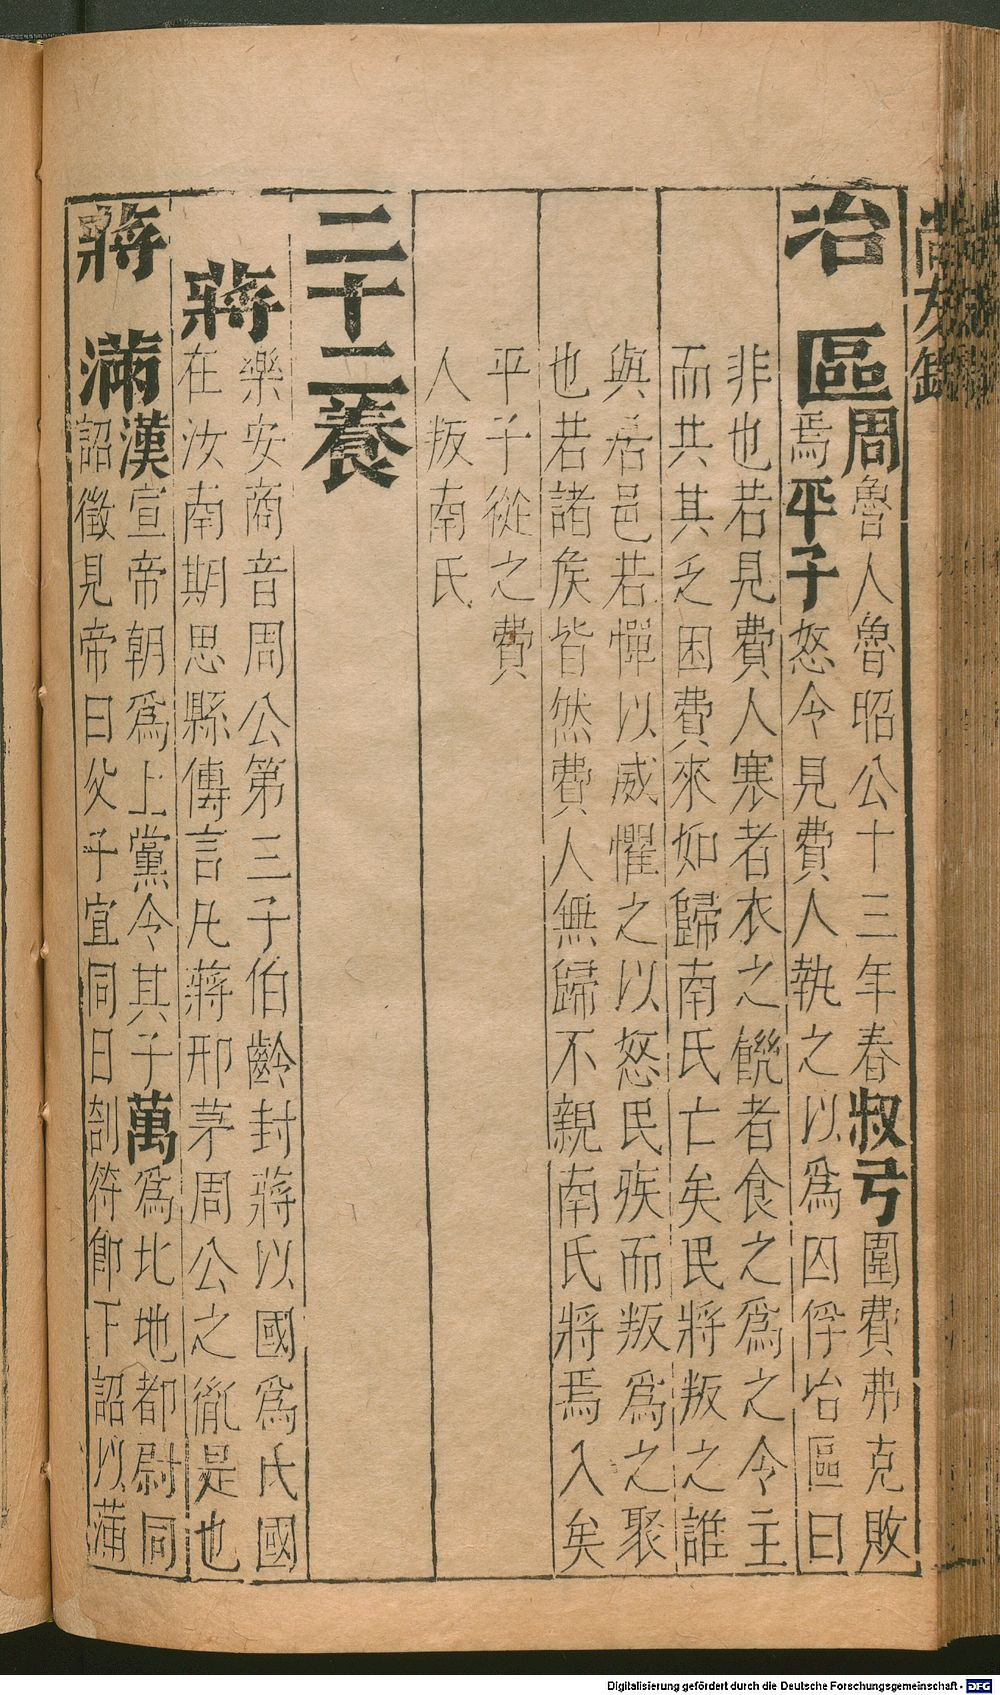 尚友錄
冶區周魯人魯昭公十三年春叔弓圍費弗克敗
焉平子怒令見費人執之以爲囚俘冶區曰
非也若見費人寒者衣之饑者食之爲之令主
而共其乏困費來如歸南氏亡矣民將叛之誰
與居邑若憚以威懼之以怒民疾而叛爲之聚
也若諸侯皆然費人無歸不親南氏將焉入矣
平子從之費
人叛南氏
二十二養
蔣樂安商音周公第三子伯齡封蔣以國爲氏國
在汝南期思縣傳言凡蔣邢茅周公之胤是也
蔣滿漢宣帝朝爲上黨令其子萬爲北地都尉同
詔徵見帝曰父子宜同日剖符卽下詔以蒲
Digitalisierung gefördert durch die Deutsche Forschungsgemeinschaft - DFG